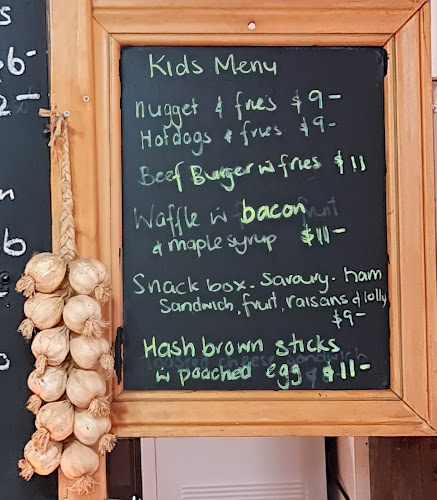 Kids Menu
nugget & fries $9-
Hotdogs & fries $9-
Beef Burger w fries $11
Waffle w bacon
& maple syrup $11-
Snack box. Savoury. ham
Sandwich, fruit, raisans & lolly
$9-
Hash brown sticks
w poached egg $11-